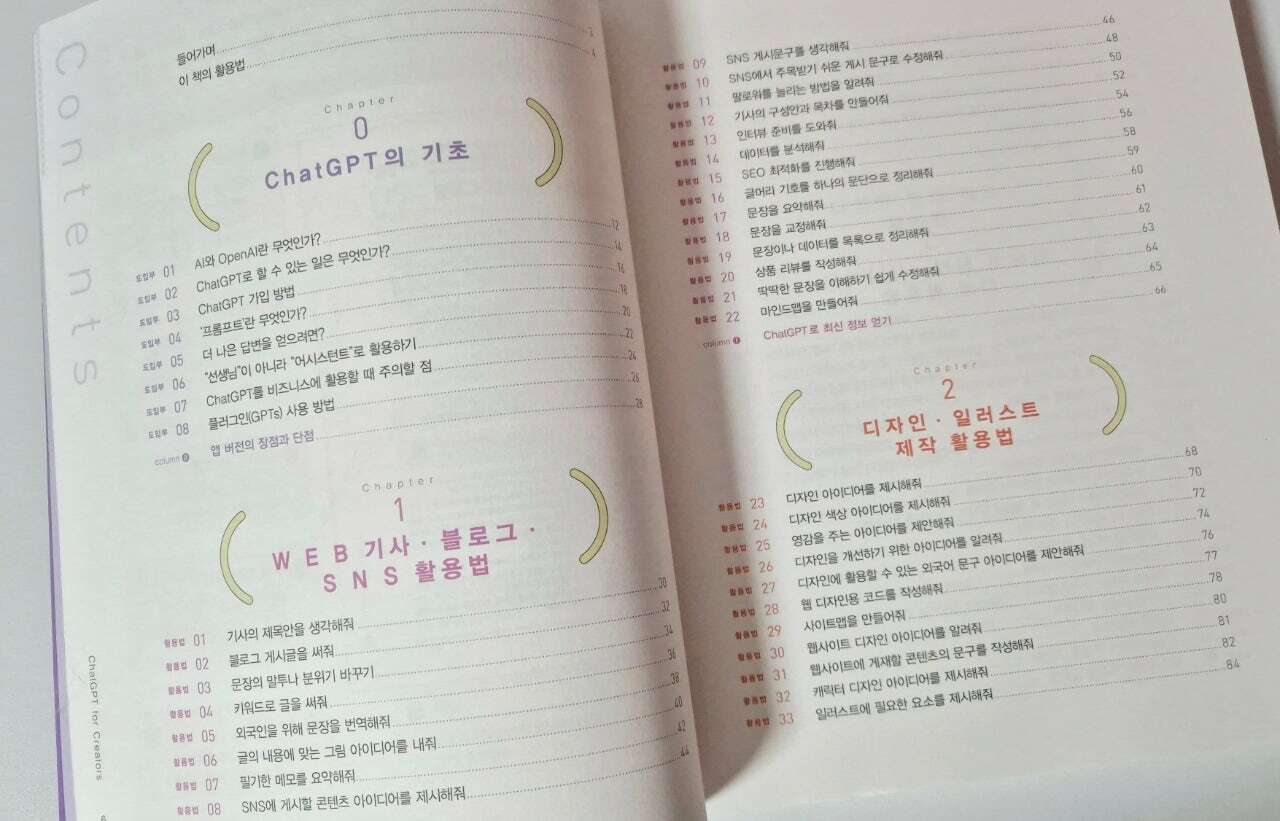 Contents
들어가며 3
이 책의 활용법 4
Chapter
0
ChatGPT의 기초
도입부 01 AI와 OpenAI란 무엇인가? 12
도입부 02 ChatGPT로 할 수 있는 일은 무엇인가? 14
도입부 03 ChatGPT 가입 방법 16
도입부 04 '프롬프트'란 무엇인가? 18
도입부 05 더 나은 답변을 얻으려면? 20
도입부 06 "선생님"이 아니라 "어시스턴트"로 활용하기 22
도입부 07 ChatGPT를 비즈니스에 활용할 때 주의할 점 24
도입부 08 플러그인(GPTs) 사용 방법 26
column 0 앱 버전의 장점과 단점 28
Chapter
1
WEB 기사 · 블로그 ·
SNS 활용법
활용법 01 기사의 제목안을 생각해줘 30
활용법 02 블로그 게시글을 써줘 32
활용법 03 문장의 말투나 분위기 바꾸기 34
활용법 04 키워드로 글을 써줘 36
활용법 05 외국인을 위해 문장을 번역해줘 38
활용법 06 글의 내용에 맞는 그림 아이디어를 내줘 40
활용법 07 필기한 메모를 요약해줘 42
활용법 08 SNS에 게시할 콘텐츠 아이디어를 제시해줘 44
ChatGPT for Creators
활용법 09 SNS 게시문구를 생각해줘 46
활용법 10 SNS에서 주목받기 쉬운 게시 문구로 수정해줘 48
활용법 11 팔로워를 늘리는 방법을 알려줘 50
활용법 12 기사의 구성안과 목차를 만들어줘 52
활용법 13 인터뷰 준비를 도와줘 54
활용법 14 데이터를 분석해줘 56
활용법 15 SEO 최적화를 진행해줘 58
활용법 16 글머리 기호를 하나의 문단으로 정리해줘 59
활용법 17 문장을 요약해줘 60
활용법 18 문장을 교정해줘 61
활용법 19 문장이나 데이터를 목록으로 정리해줘 62
활용법 20 상품 리뷰를 작성해줘 63
활용법 21 딱딱한 문장을 이해하기 쉽게 수정해줘 64
활용법 22 마인드맵을 만들어줘 65
column 1 ChatGPT로 최신 정보 얻기 66
Chapter
2
디자인 · 일러스트
제작 활용법
활용법 23 디자인 아이디어를 제시해줘 68
활용법 24 디자인 색상 아이디어를 제시해줘 70
활용법 25 영감을 주는 아이디어를 제안해줘 72
활용법 26 디자인을 개선하기 위한 아이디어를 알려줘 74
활용법 27 디자인에 활용할 수 있는 외국어 문구 아이디어를 제안해줘 76
활용법 28 웹 디자인용 코드를 작성해줘 77
활용법 29 사이트맵을 만들어줘 78
활용법 30 웹사이트 디자인 아이디어를 알려줘 80
활용법 31 웹사이트에 게재할 콘텐츠의 문구를 작성해줘 81
활용법 32 캐릭터 디자인 아이디어를 제시해줘 82
활용법 33 일러스트에 필요한 요소를 제시해줘 84